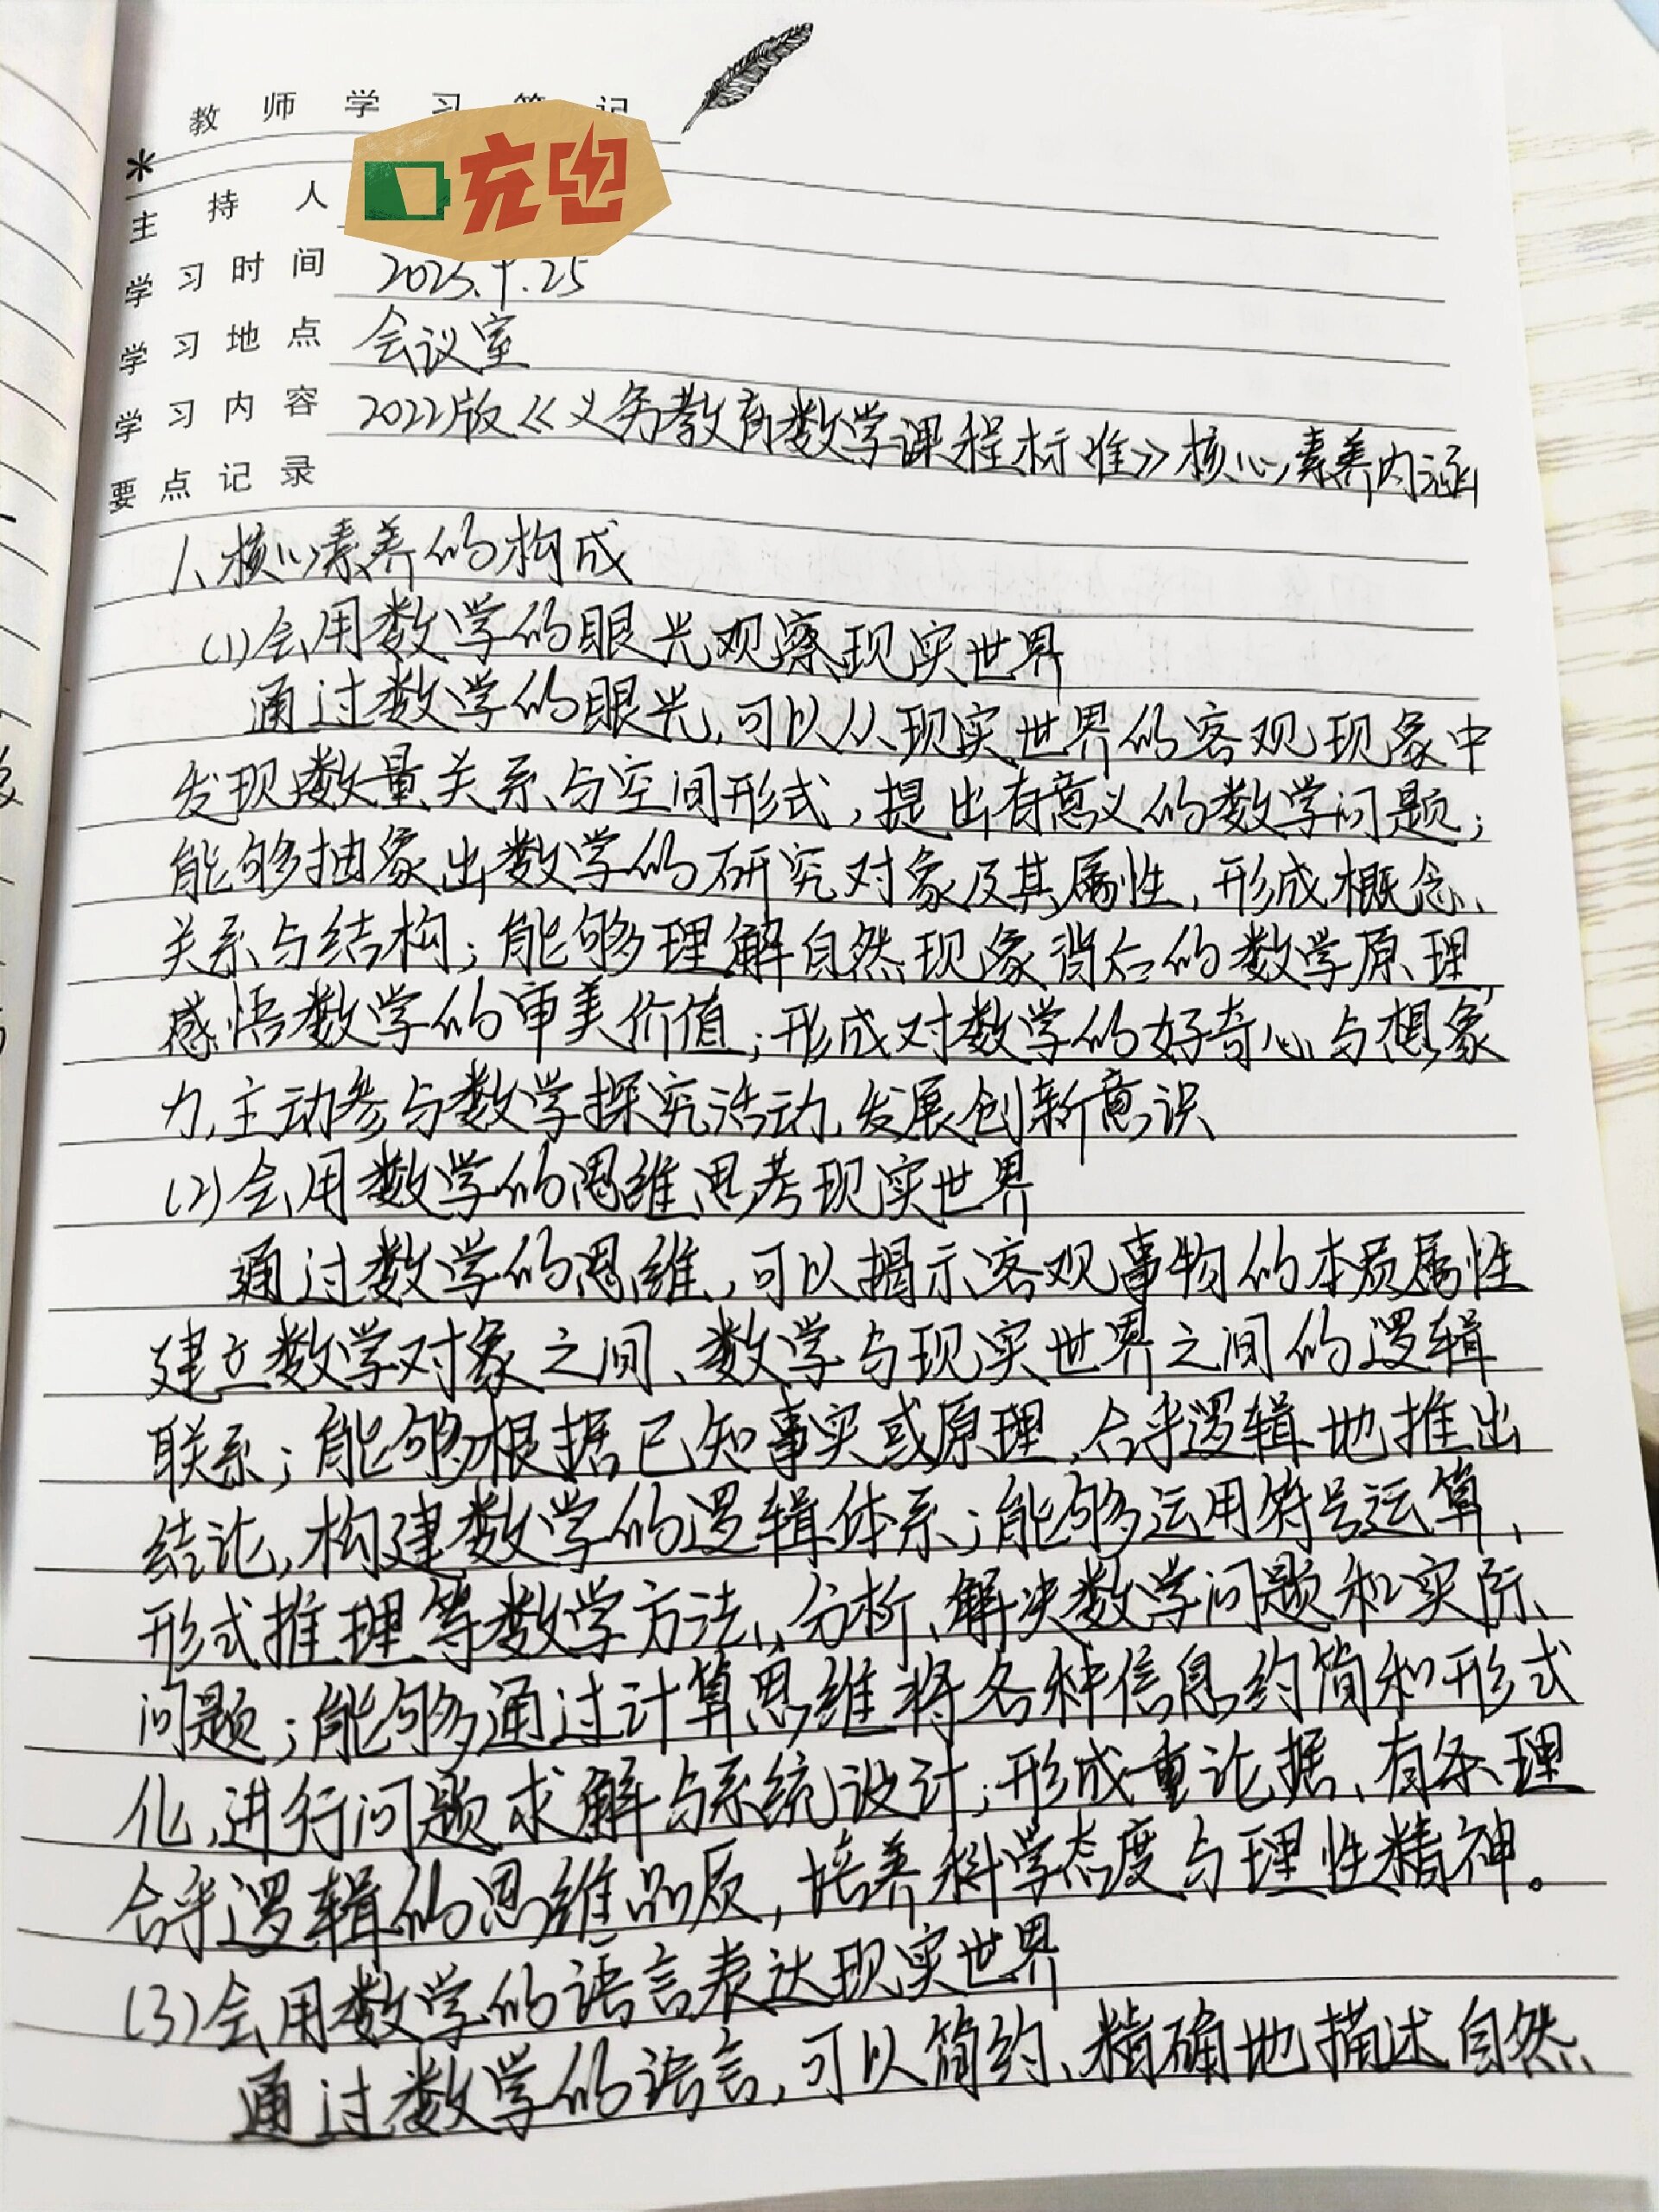 教师学习笔记
充电
主持人
学习时间 2023.9.25
学习地点 会议室
学习内容 2022版《义务教育数学课程标准》核心素养内涵
要点记录
1、核心素养的构成
(1)会用数学的眼光观察现实世界
通过数学的眼光,可以从现实世界的客观现象中
发现数量关系与空间形式,提出有意义的数学问题;
能够抽象出数学的研究对象及其属性,形成概念、
关系与结构;能够理解自然现象背后的数学原理,
感悟数学的审美价值;形成对数学的好奇心与想象
力,主动参与数学探究活动,发展创新意识
(2)会用数学的思维思考现实世界
通过数学的思维,可以揭示客观事物的本质属性
建立数学对象之间、数学与现实世界之间的逻辑
联系;能够根据已知事实或原理,合乎逻辑地推出
结论,构建数学的逻辑体系;能够运用符号运算、
形式推理等数学方法,分析、解决数学问题和实际
问题;能够通过计算思维将各种信息约简和形式
化,进行问题求解与系统设计;形成重论据、有条理
合乎逻辑的思维品质,培养科学态度与理性精神。
(3)会用数学的语言表达现实世界
通过数学的语言,可以简约、精确地描述自然